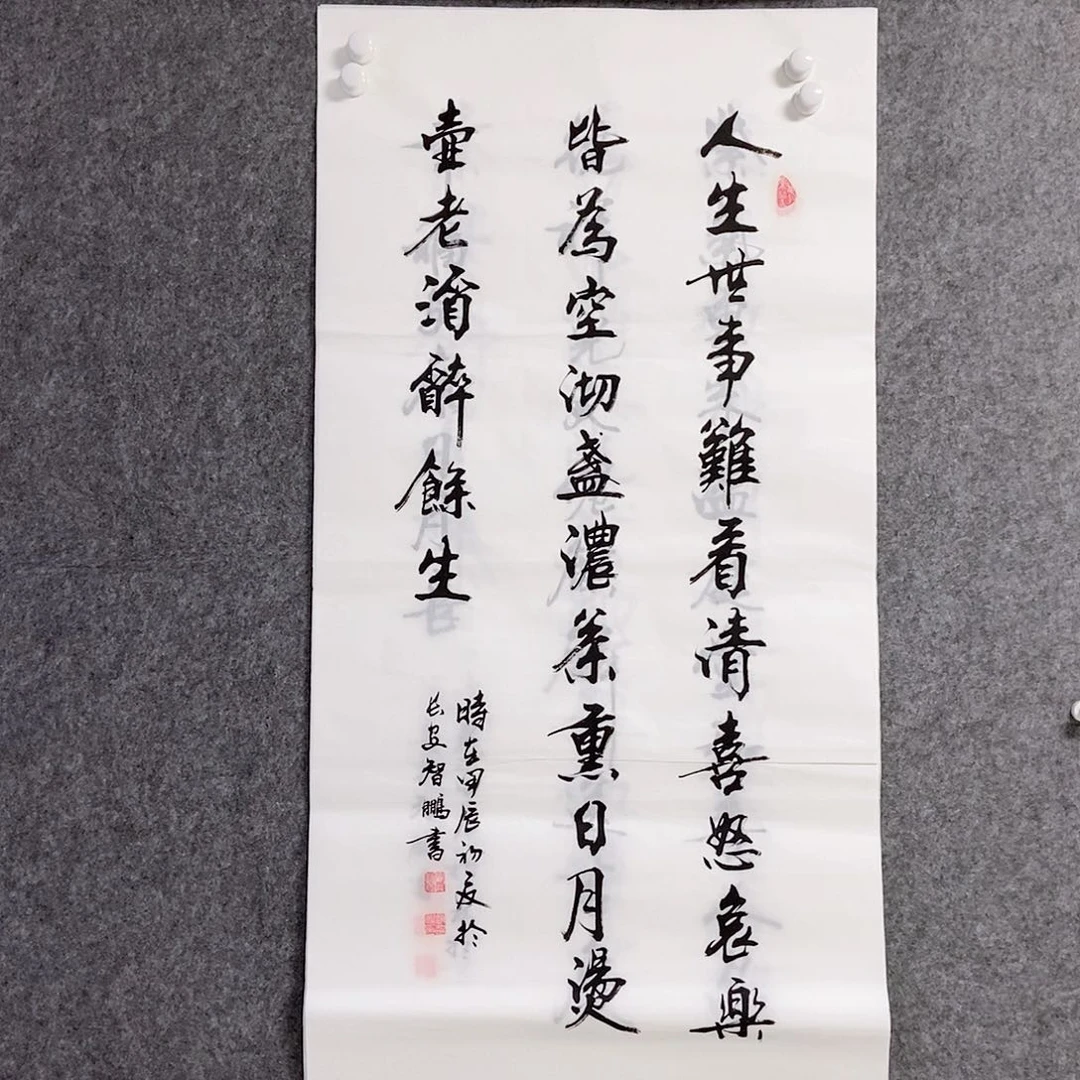 人生世事難看清喜怒哀樂
皆為空沏盞濃茶熏日月燙
壺老酒醉餘生
時在甲辰初夏於
長安智鵬書